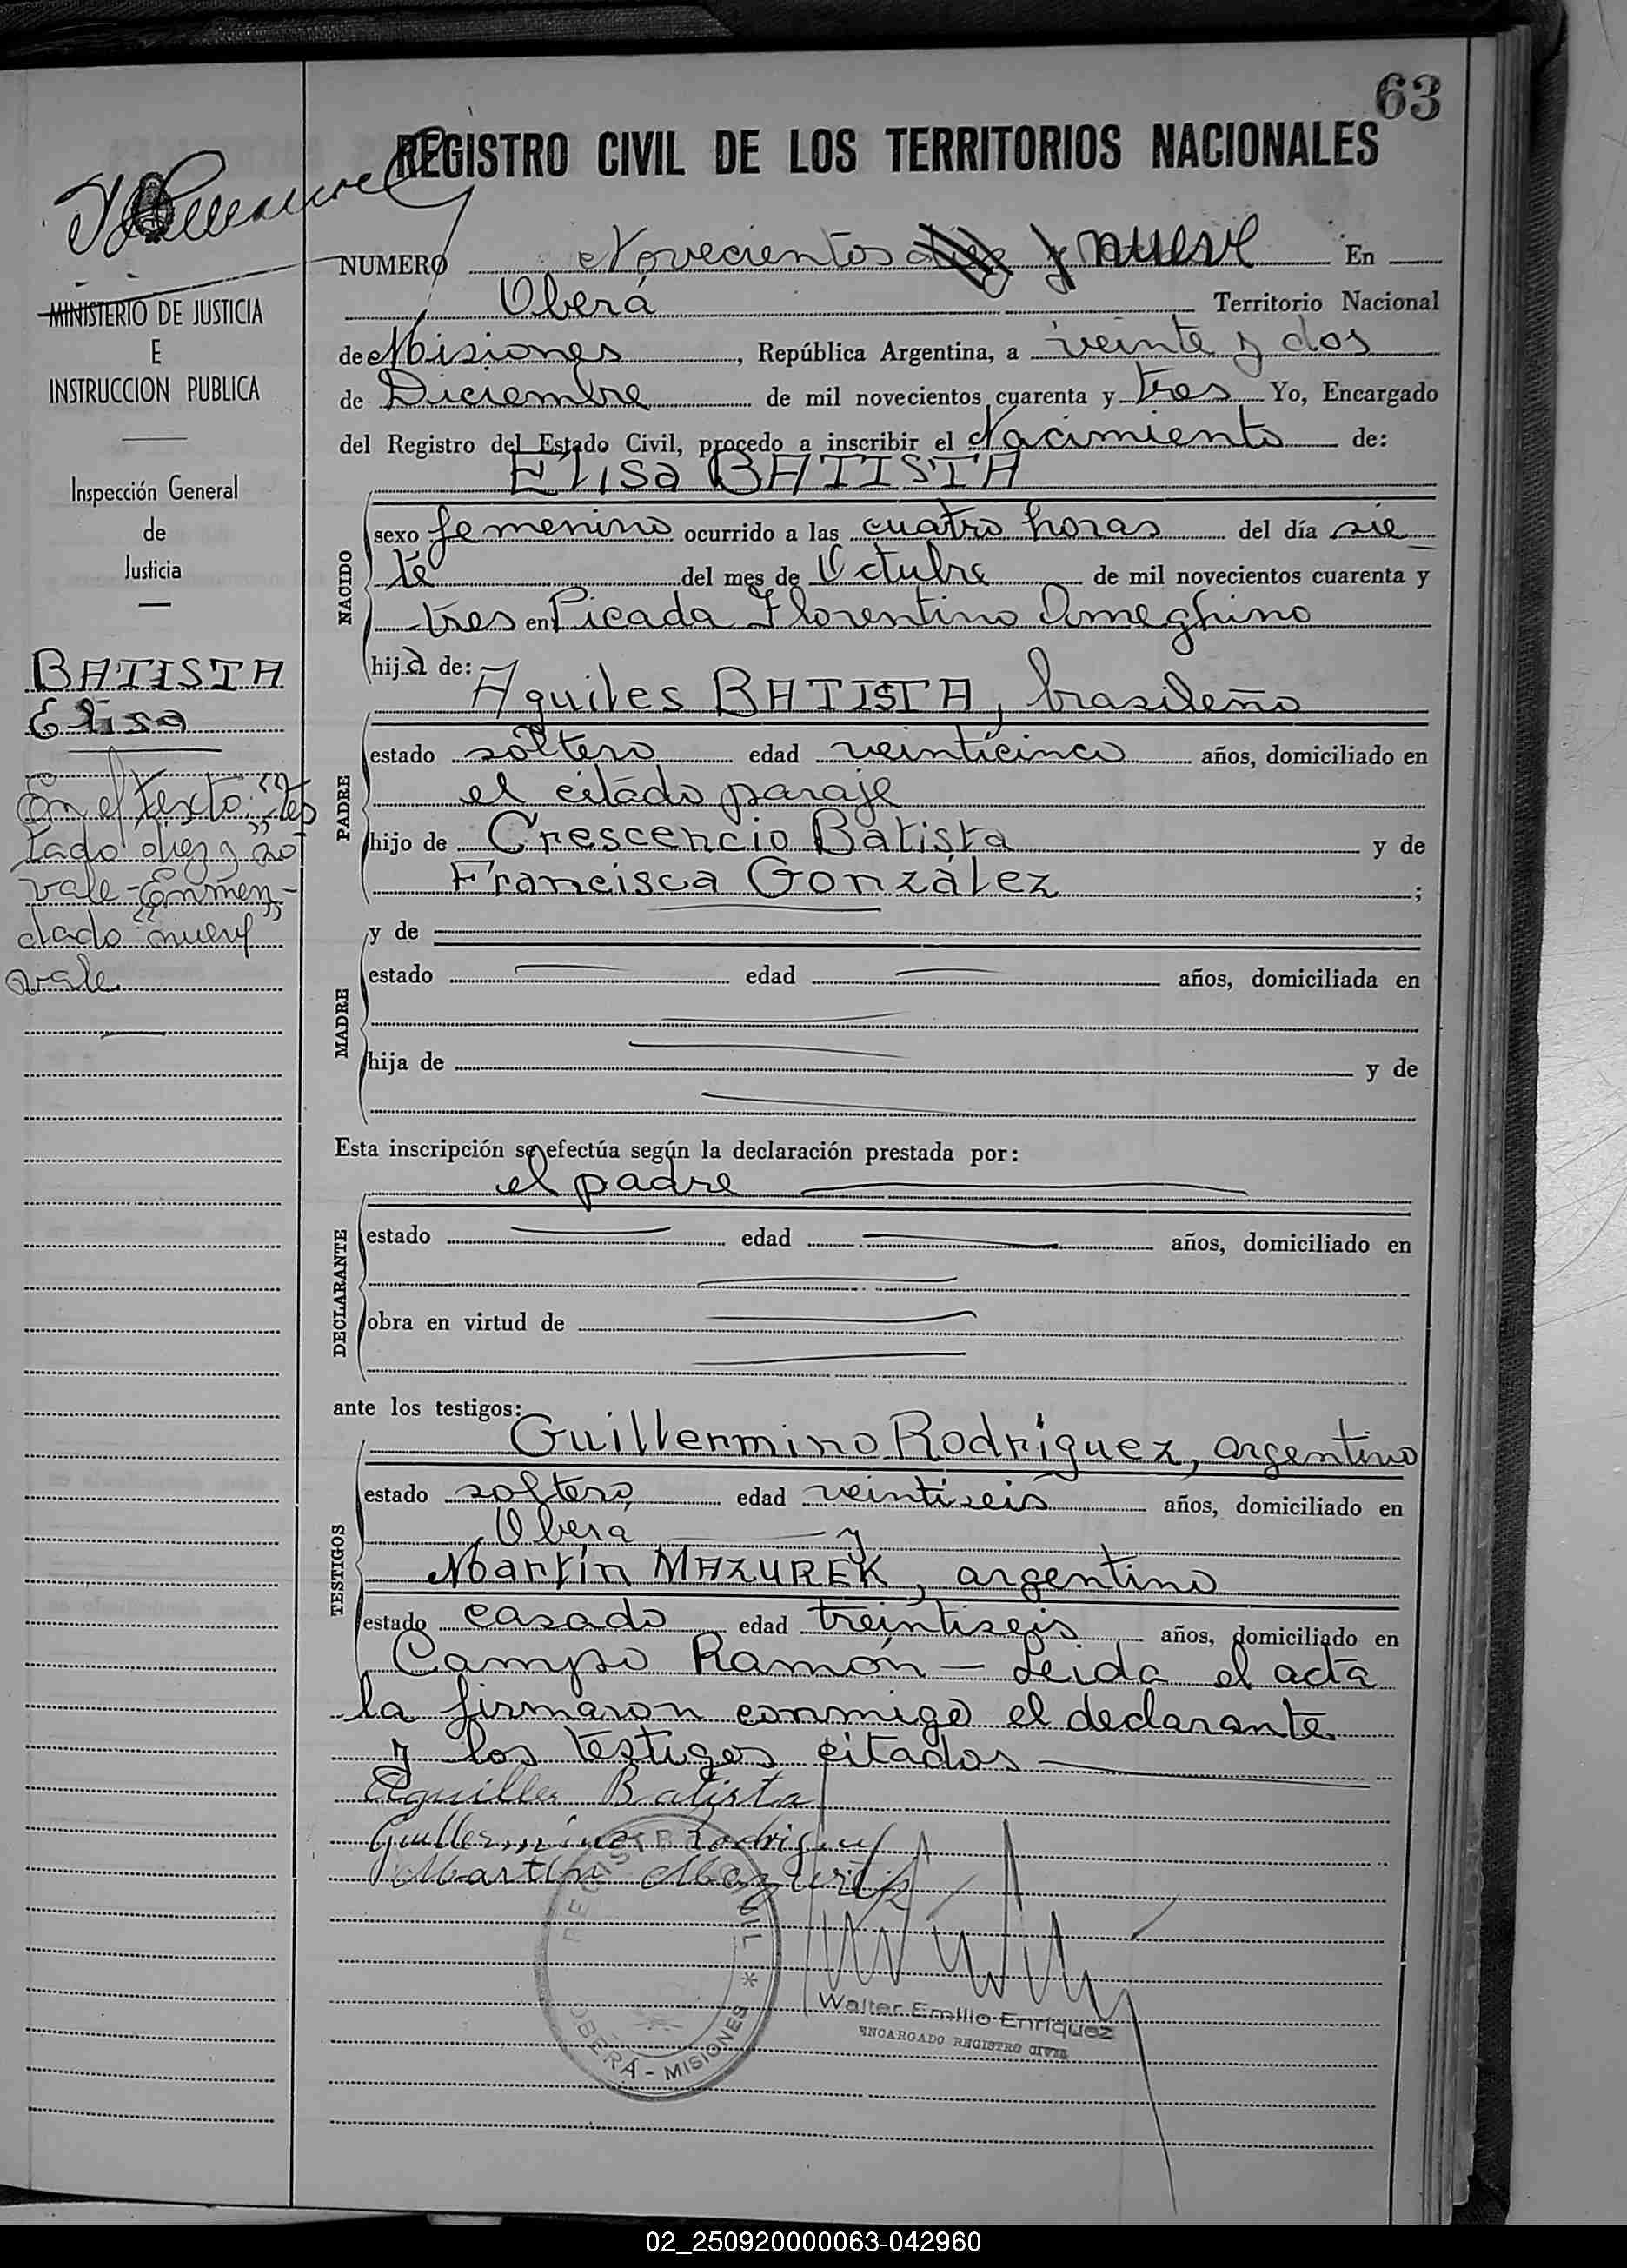 63
REGISTRO CIVIL DE LOS TERRITORIOS NACIONALES
MINISTERIO DE JUSTICIA
E
INSTRUCCION PUBLICA
Inspección General
de
Justicia
BATISTA
Elisa
En el texto: "Tes
tado diez y no
vale - Enmen-
dado "nueve"
vale
NUMERO Novecientos diez y nueve En
Oberá Territorio Nacional
de Misiones, República Argentina, a veinte y dos
de Diciembre de mil novecientos cuarenta y tres Yo, Encargado
del Registro del Estado Civil, procedo a inscribir el Nacimiento de:
Elisa BATISTA
NACIDO
sexo femenino ocurrido a las cuatro horas del día sie
te del mes de Octubre de mil novecientos cuarenta y
tres en Picada Florentino Ameghino
hija de:
Aquiles BATISTA, brasileño
PADRE
estado soltero edad veinticinco años, domiciliado en
el citado paraje
hijo de Crescencio Batista y de
Francisca González ;
MADRE
y de
estado edad años, domiciliada en
hija de y de
Esta inscripción se efectúa según la declaración prestada por:
el padre
DECLARANTE
estado edad años, domiciliado en
obra en virtud de
ante los testigos:
Guillermino Rodríguez, argentino
TESTIGOS
estado soltero, edad veintiseis años, domiciliado en
Oberá y
Martín MAZUREK, argentino
estado casado edad treintiseis años, domiciliado en
Campo Ramón - Leida el acta
la firmaron conmigo el declarante
y los testigos citados
Aquilles Batista
Guillermino Rodriguez
Martin Mazurek
REGISTRO CIVIL *
OBERÁ - MISIONES
Walter Emilio Enriquez
ENCARGADO REGISTRO CIVIL
02_250920000063-042960